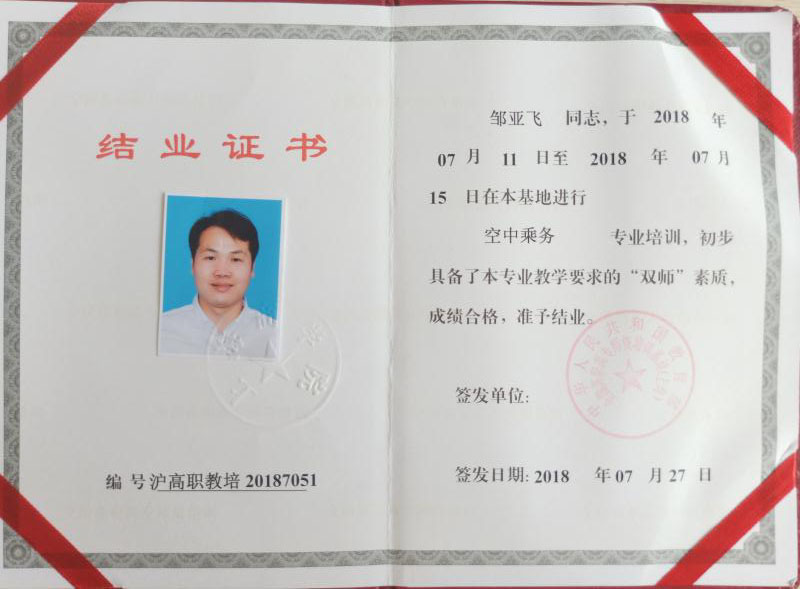 结业证书
编 号沪高职教培 20187051
邹亚飞 同志，于 2018 年
07 月 11 日至 2018 年 07 月
15 日在本基地进行
空中乘务 专业培训，初步
具备了本专业教学要求的“双师”素质，
成绩合格，准予结业。
中华人民共和国教育部
签发单位:
签发日期: 2018 年 07 月 27 日